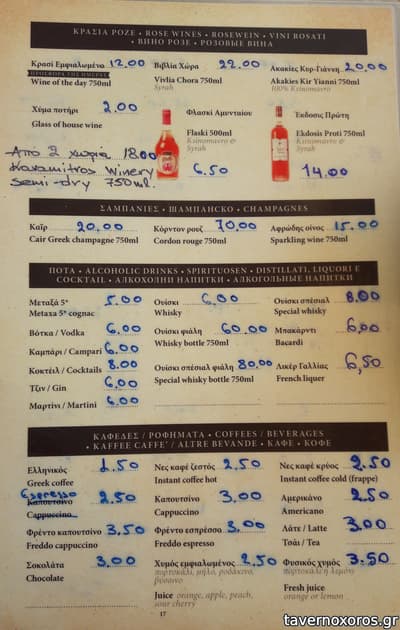 ΚΡΑΣΙΑ ΡΟΖΕ • ROSE WINES • ROSEWEIN • VINI ROSATI
• ВИНО РОЗЕ • РОЗОВЫЕ ВИНА
Κρασί Εμφιαλωμένο 12.00 Βιβλία Χώρα 22.00 Ακακίες Κυρ-Γιάννη 20.00
ΠΡΟΣΦΟΡΑ ΤΗΣ ΗΜΕΡΑΣ
Wine of the day 750ml Vivlia Chora 750ml Akakies Kir Yianni 750ml
Syrah 100% Ksinomavro
Χύμα ποτήρι 2.00 Φλασκί Αμυνταίου Εκδοσις Πρώτη
Glass of house wine Flaski 500ml Ekdosis Proti 750ml
Ksinomavro & Syrah Ksinomavro & Syrah
Απο 2 χωριά 18.00
Karamitros Winery 6.50 14.00
Semi-dry 750ml
ΣΑΜΠΑΝΙΕΣ • ШАМПАНСКО • CHAMPAGNES
Καΐρ 20,00 Κόρντον ρουζ 70,00 Αφρώδης οίνος 15.00
Cair Greek champagne 750ml Cordon rouge 750ml Sparkling wine 750ml
ΠΟΤΑ • ALCOHOLIC DRINKS • SPIRITUOSEN • DISTILLATI, LIQUORI E
COCKTAIL • АЛКОХОЛНИ НАПИТКИ • АЛКОГОЛЬНЫЕ НАПИТКИ
Μεταξά 5* 5.00 Ουίσκι 6.00 Ουίσκι σπέσιαλ 8.00
Metaxa 5* cognac Whisky Special whisky
Βότκα / Vodka 6.00 Ουίσκι φιάλη 60.00 Μπακάρντι 6,00
Καμπάρι / Campari 6.00 Whisky bottle 750ml Bacardi
Κοκτέιλ / Cocktails 8.00 Ουίσκι σπέσιαλ φιάλη 80.00 Λικέρ Γαλλίας 6,50
Τζιν / Gin 6,00 Special whisky bottle 750ml French liquer
Μαρτίνι / Martini 6.00
ΚΑΦΕΔΕΣ / ΡΟΦΗΜΑΤΑ • COFFEES / BEVERAGES
• KAFFEE CAFFE' / ALTRE BEVANDE • КАФЕ • КОФЕ
Ελληνικός 1.50 Νες καφέ ζεστός 2.50 Νες καφέ κρύος 2.50
Greek coffee Instant coffee hot Instant coffee cold (frappe)
Espresso
Καπουτσίνο 2.50 Καπουτσίνο 3,00 Αμερικάνο 2.50
Cappuccino Cappuccino Americano
Φρέντο καπουτσίνο 3,50 Φρέντο εσπρέσσο 3,00 Λάτε / Latte 3,00
Freddo cappuccino Freddo espresso Τσάι / Tea
Σοκολάτα 3.00 Χυμός εμφιαλωμένος 2,50 Φυσικός χυμός 3.50
Chocolate πορτοκάλι, μήλο, ροδάκινο, βύσσινο πορτοκάλι ή λεμόνι
Juice orange, apple, peach, sour cherry Fresh juice orange or lemon
17
tavernoxoros.gr